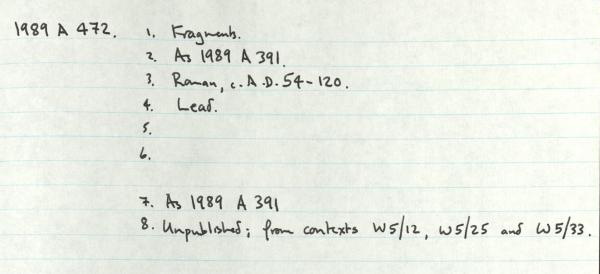 1989 A 472. 1. Fragments.
2. As 1989 A 391.
3. Roman, c. A.D. 54-120.
4. Lead.
5.
6.
7. As 1989 A 391
8. Unpublished; from contexts W5/12, W5/25 and W5/33.